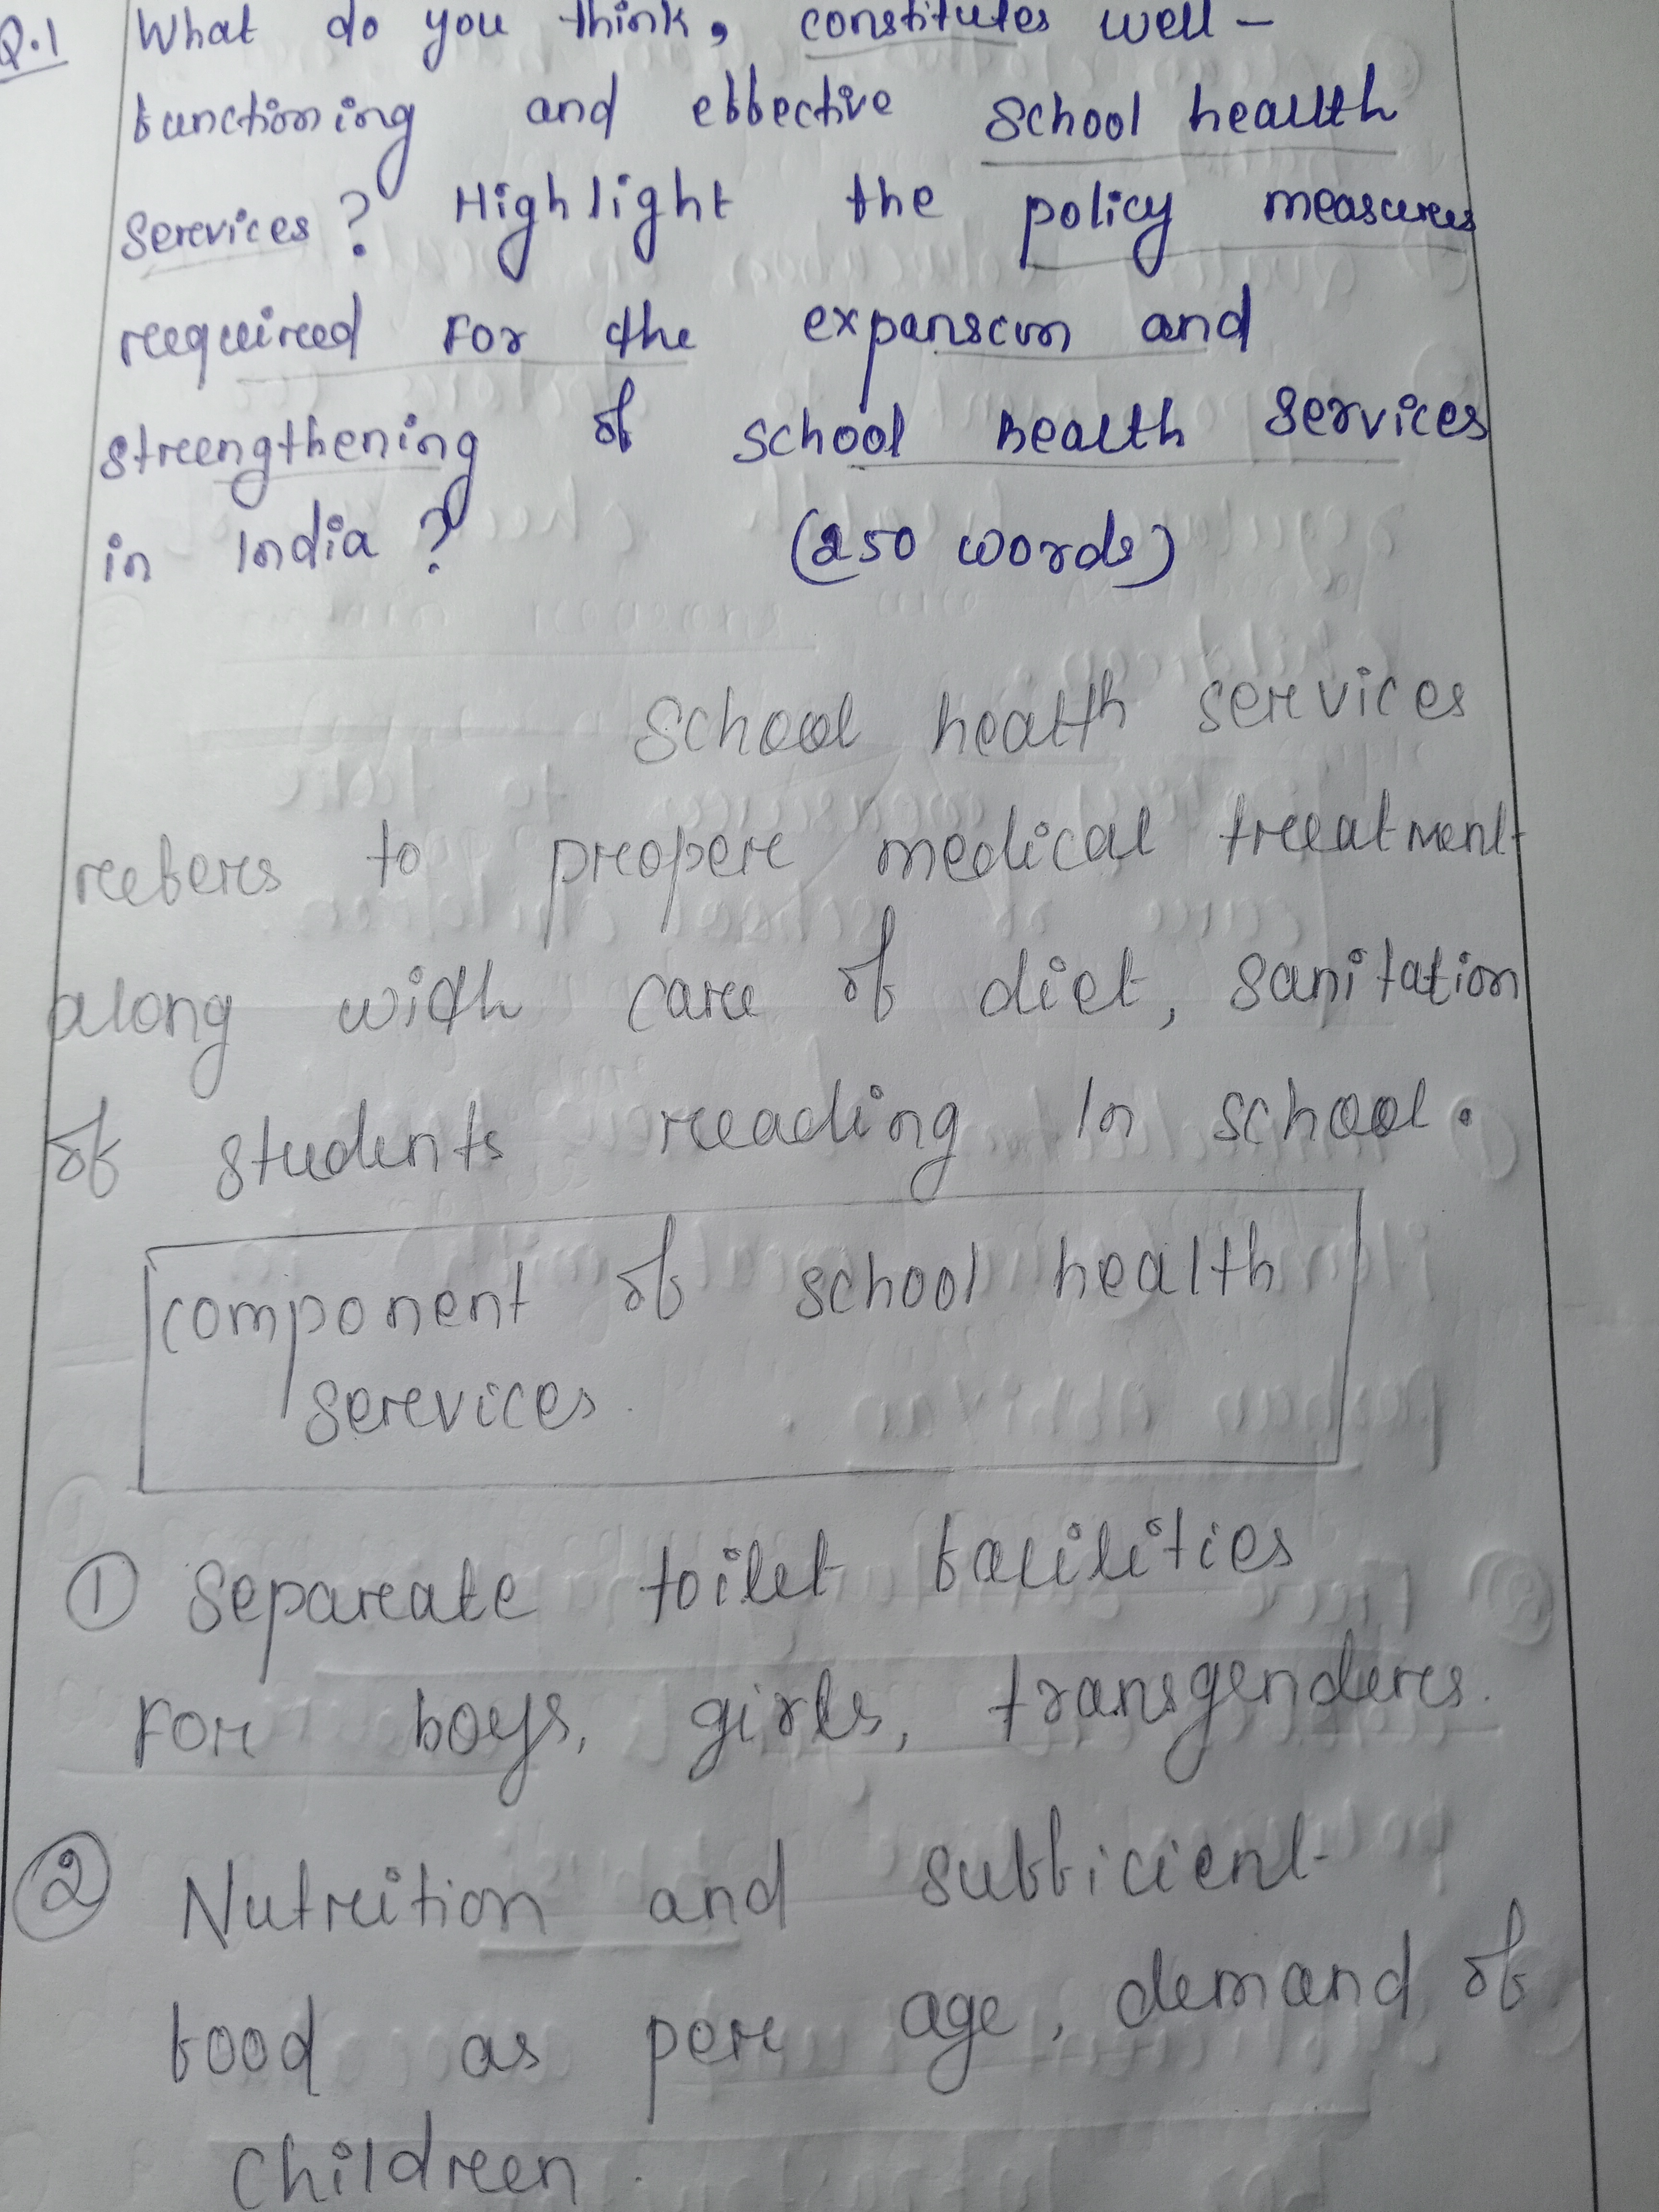 Q.1 What do you think, constitutes well-
functioning and effective school health
services? Highlight the policy measures
required for the expansion and
strengthening of school health services
in India? (250 words)
School health services
refers to proper medical treatment
along with care of diet, sanitation
of students reading in school.
component of school health
services.
① Separate toilet facilities
for boys, girls, transgenders.
② Nutrition and sufficient
food as per age, demand of
children.